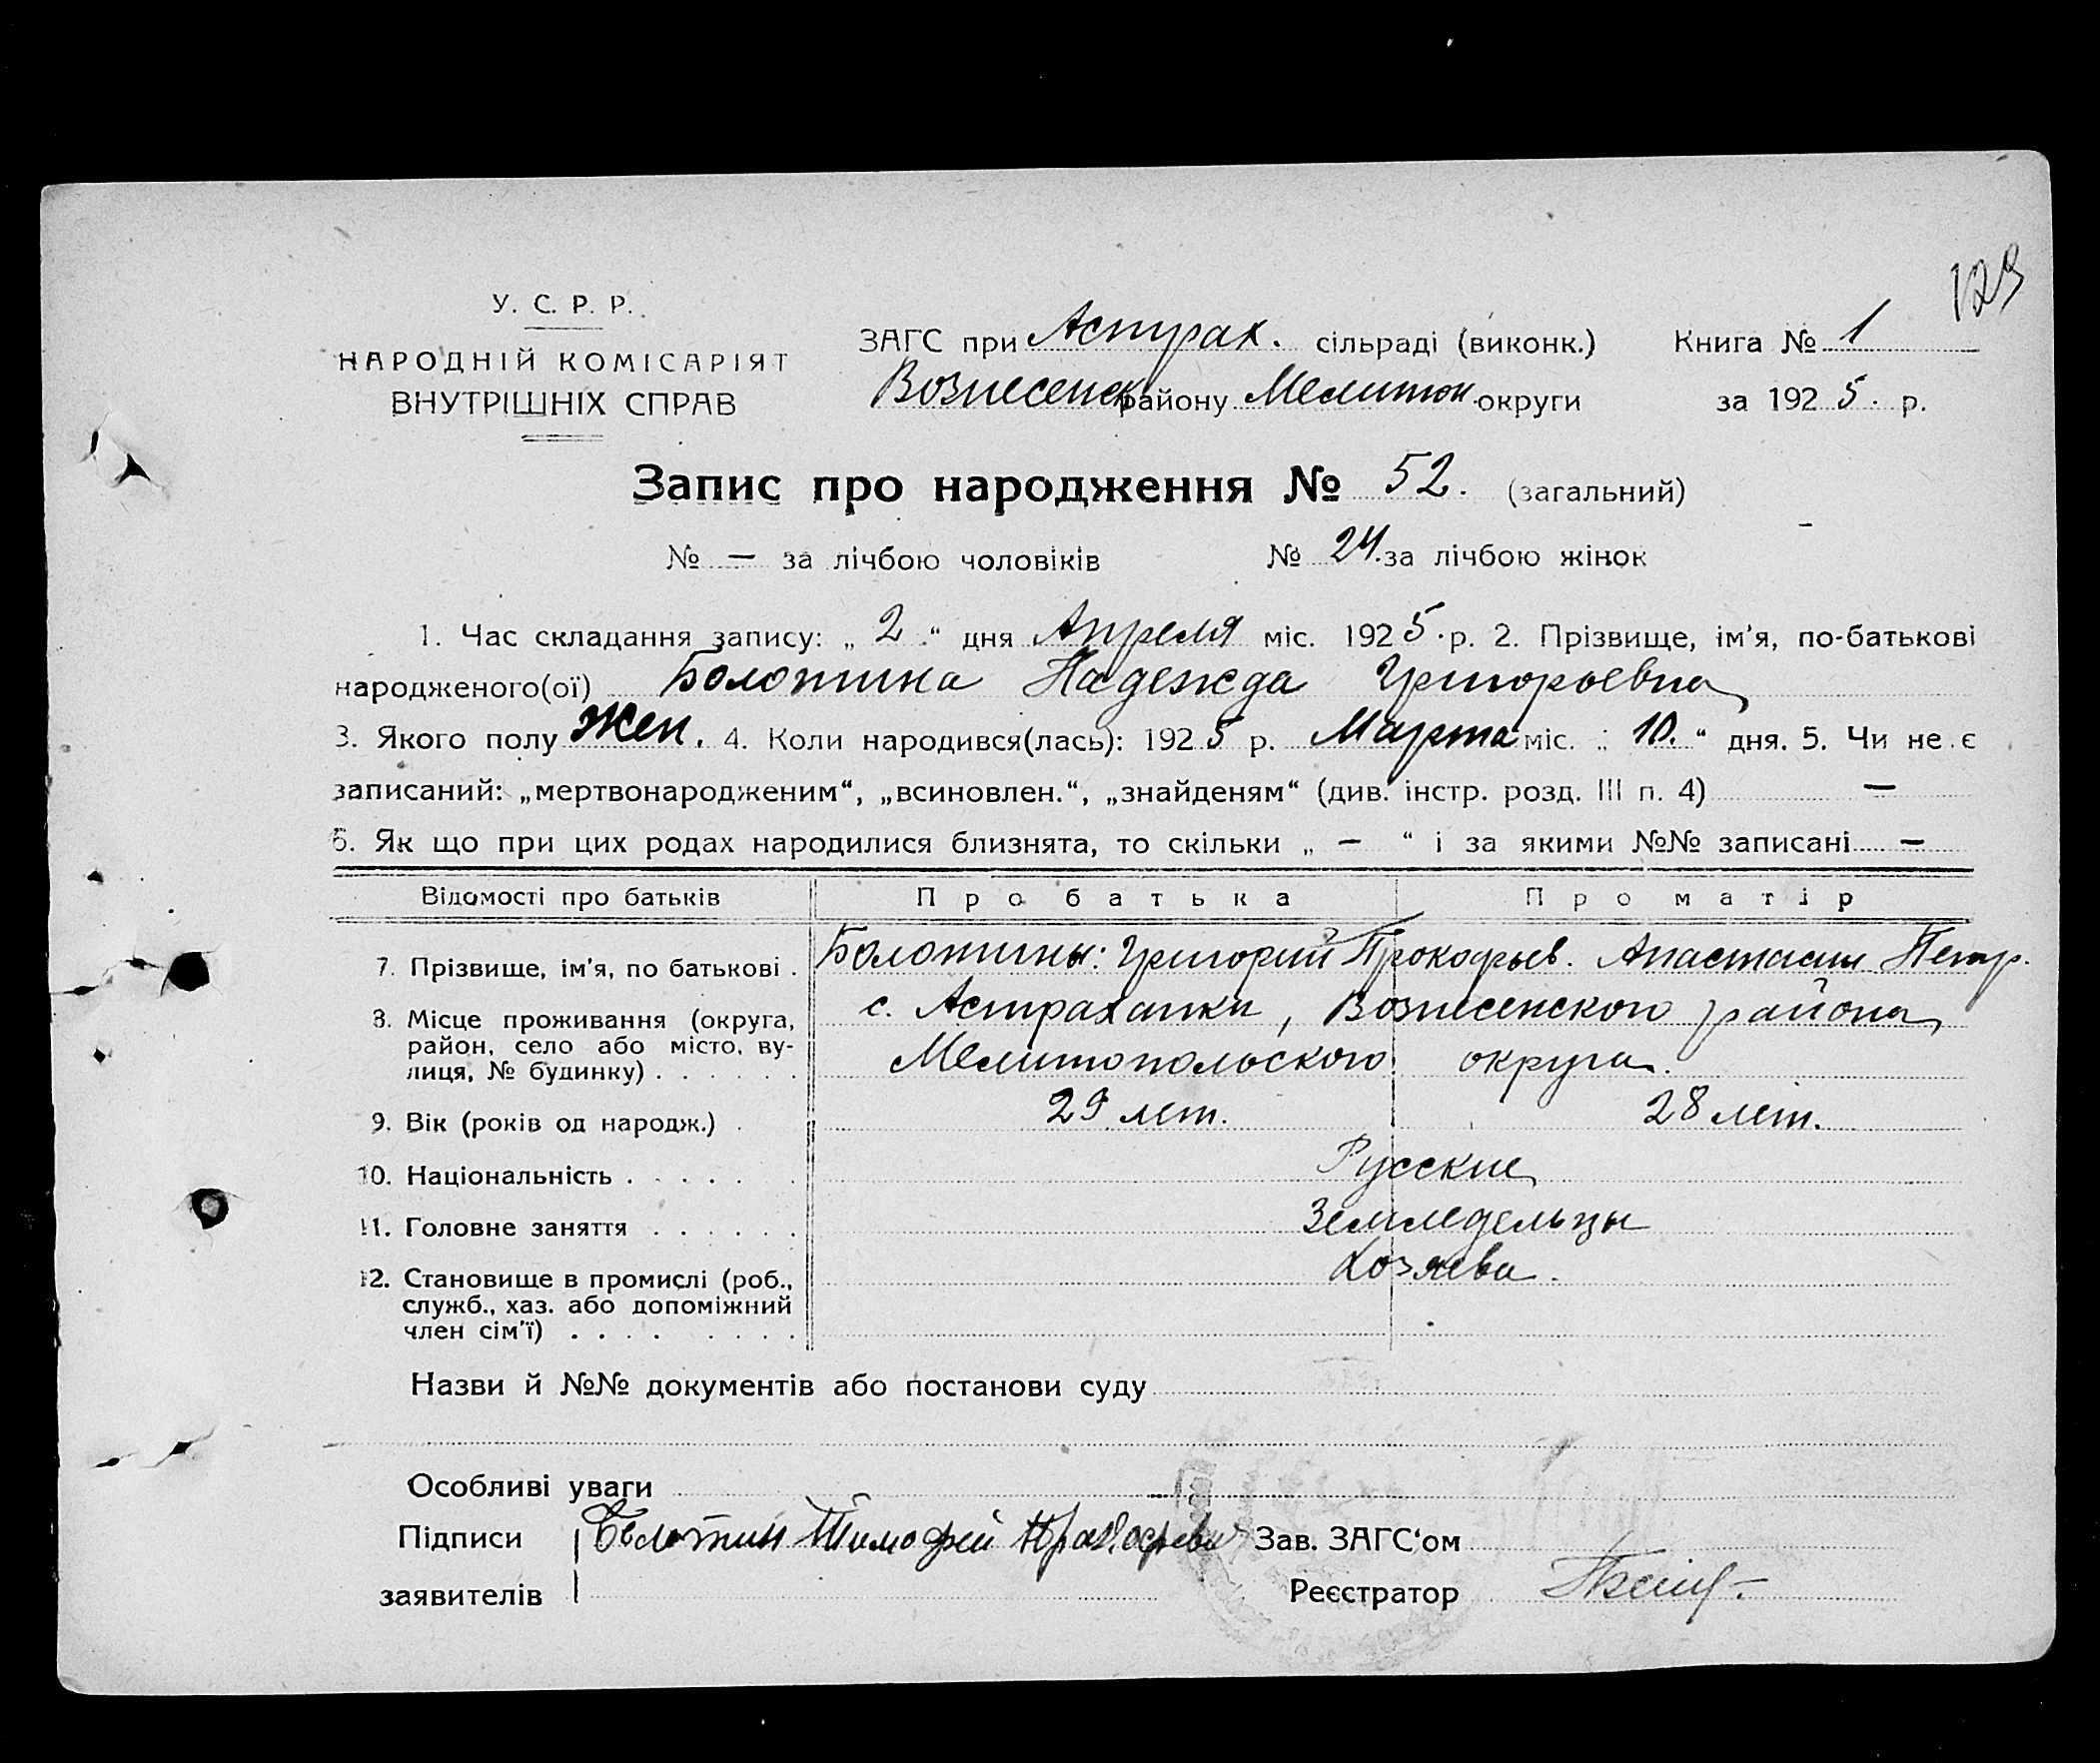 129
У. С. Р. Р.
НАРОДНІЙ КОМІСАРІЯТ
ВНУТРІШНІХ СПРАВ
ЗАГС при Астрах. сільраді (виконк.) Книга № 1
Вознесенск району Мелитоп. округи за 1925. р.
Запис про народження № 52. (загальний)
№ — за лічбою чоловіків № 24. за лічбою жінок
1. Час складання запису: „ 2 “ дня Апреля міс. 1925. р. 2. Прізвище, ім’я, по-батькові
народженого(ої) Болотина Надежда Григорьевна
3. Якого полу Жен. 4. Коли народився(лась): 1925 р. Марта міс. „ 10. “ дня. 5. Чи не є
записаний: „мертвонародженим“, „всиновлен.“, „знайденям“ (див. інстр. розд. III п. 4) —
6. Як що при цих родах народилися близнята, то скільки „ — “ і за якими №№ записані —
Відомості про батьків Про батька Про матір
7. Прізвище, ім’я, по батькові . Болотины: Григорий Прокофьев. Анастасия Петр.
8. Місце проживання (округа, с. Астраханки, Вознесенского района,
район, село або місто, ву-
лиця, № будинку) . . . . . . Мелитопольского округа.
9. Вік (років од народж.) . 29 лет. 28 лет.
10. Національність . . . . . . Русские
11. Головне заняття . . . . . . Земледельцы
12. Становище в промислі (роб., Хозяева.
служб., хаз. або допоміжний
член сім’ї) . . . . . . . .
Назви й №№ документів або постанови суду
Особливі уваги
Підписи Болотин Тимофей Зав. ЗАГС‘ом
заявителів Реєстратор